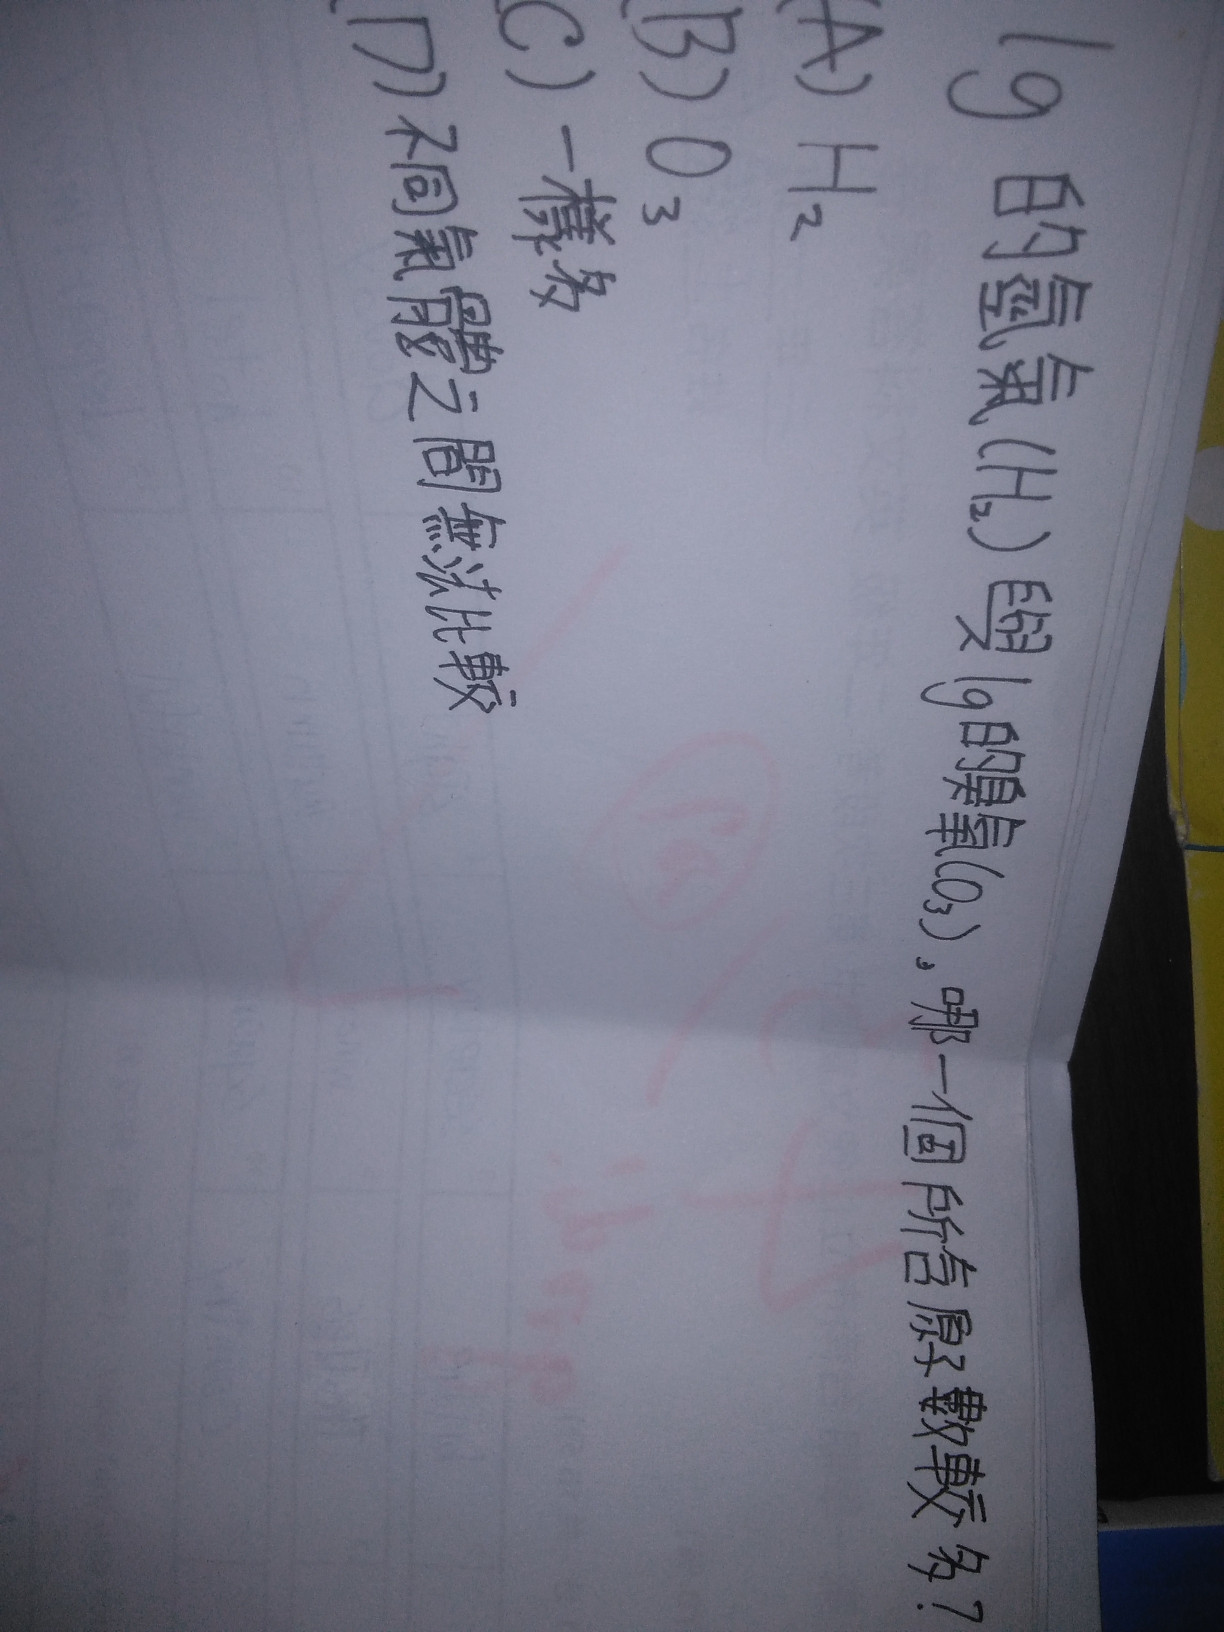 1g 的氫氣(H₂)與1g的臭氧(O₃),哪一個所含原子數較多?
(A) H₂
(B) O₃
(C) 一樣多
(D) 不同氣體之間無法比較